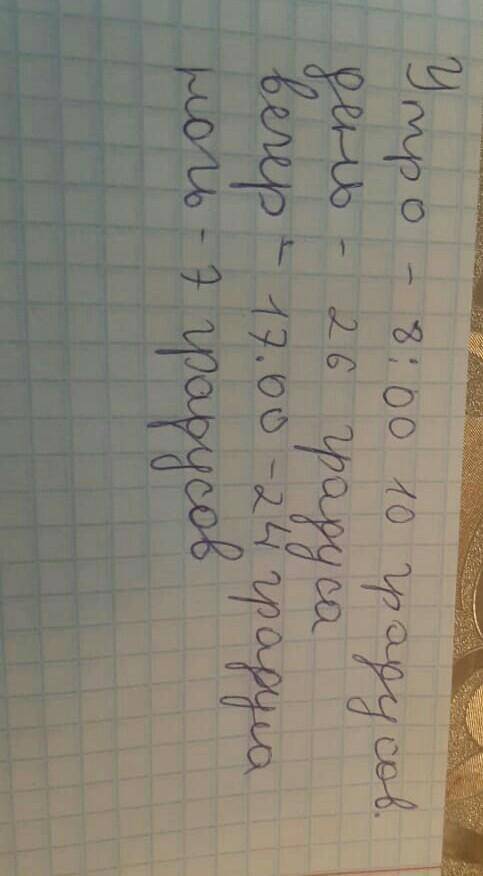 Утро - 8:00 10 градусов.
день - 26 градуса
вечер - 17.00 - 24 градуса
ночь - 7 градусов